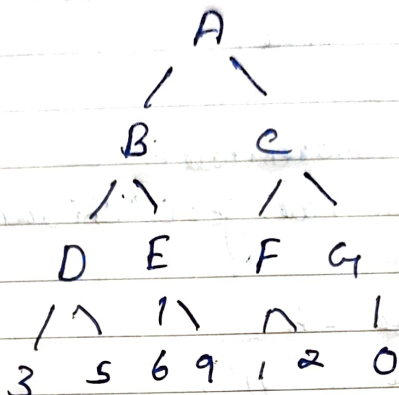 A
B C
D E F G
3 5 6 9 1 2 0